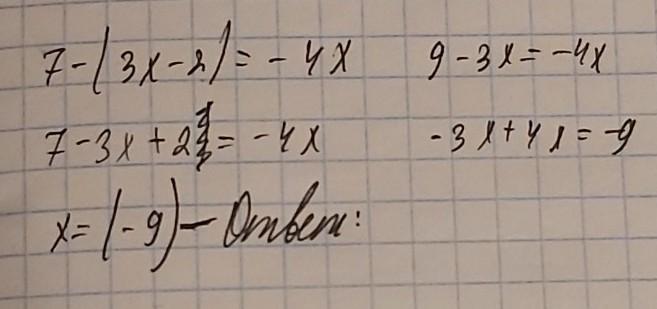 7-(3x-2)=-4x
7-3x+2=-4x
9-3x=-4x
-3x+4x=-9
x=(-9)-Ответ: